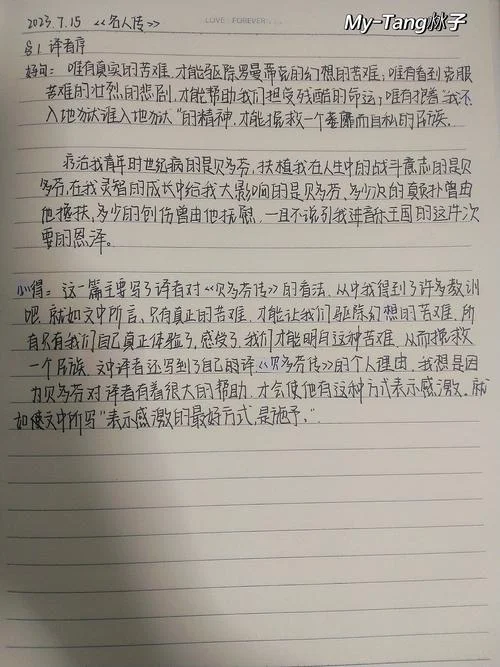 My-Tang秋子
LOVE FOREVER
2023.7.15 《名人传》
§1.译者序
好句：唯有真实的苦难，才能驱除罗曼蒂克的幻想的苦难；唯有看到克服
苦难的壮烈的悲剧，才能帮助我们担受残酷的命运；唯有抱着"我不
入地狱谁入地狱"的精神，才能挽救一个萎靡而自私的民族。
疗治我青年时世纪病的是贝多芬，扶植我在人生中的战斗意志的是贝
多芬，在我灵智的成长中给我大影响的是贝多芬，多少次的颠扑曾由
他搀扶，多少的创伤曾由他抚慰，一且不说引我进音乐王国的这件次
要的恩泽。
心得：这一篇主要写了译者对《贝多芬传》的看法，从中我得到了许多教训
吧，就如文中所言，只有真正的苦难，才能让我们驱除幻想的苦难，所
有只有我们自己真正体验了，感受了，我们才能明白这种苦难，从而挽救
一个民族，文中译者还写到了自己翻译《贝多芬传》的个人理由，我想是因
为贝多芬对译者有着很大的帮助，才会使他有这种方式表示感激。就
如像文中所写"表示感激的最好方式，是施予。"